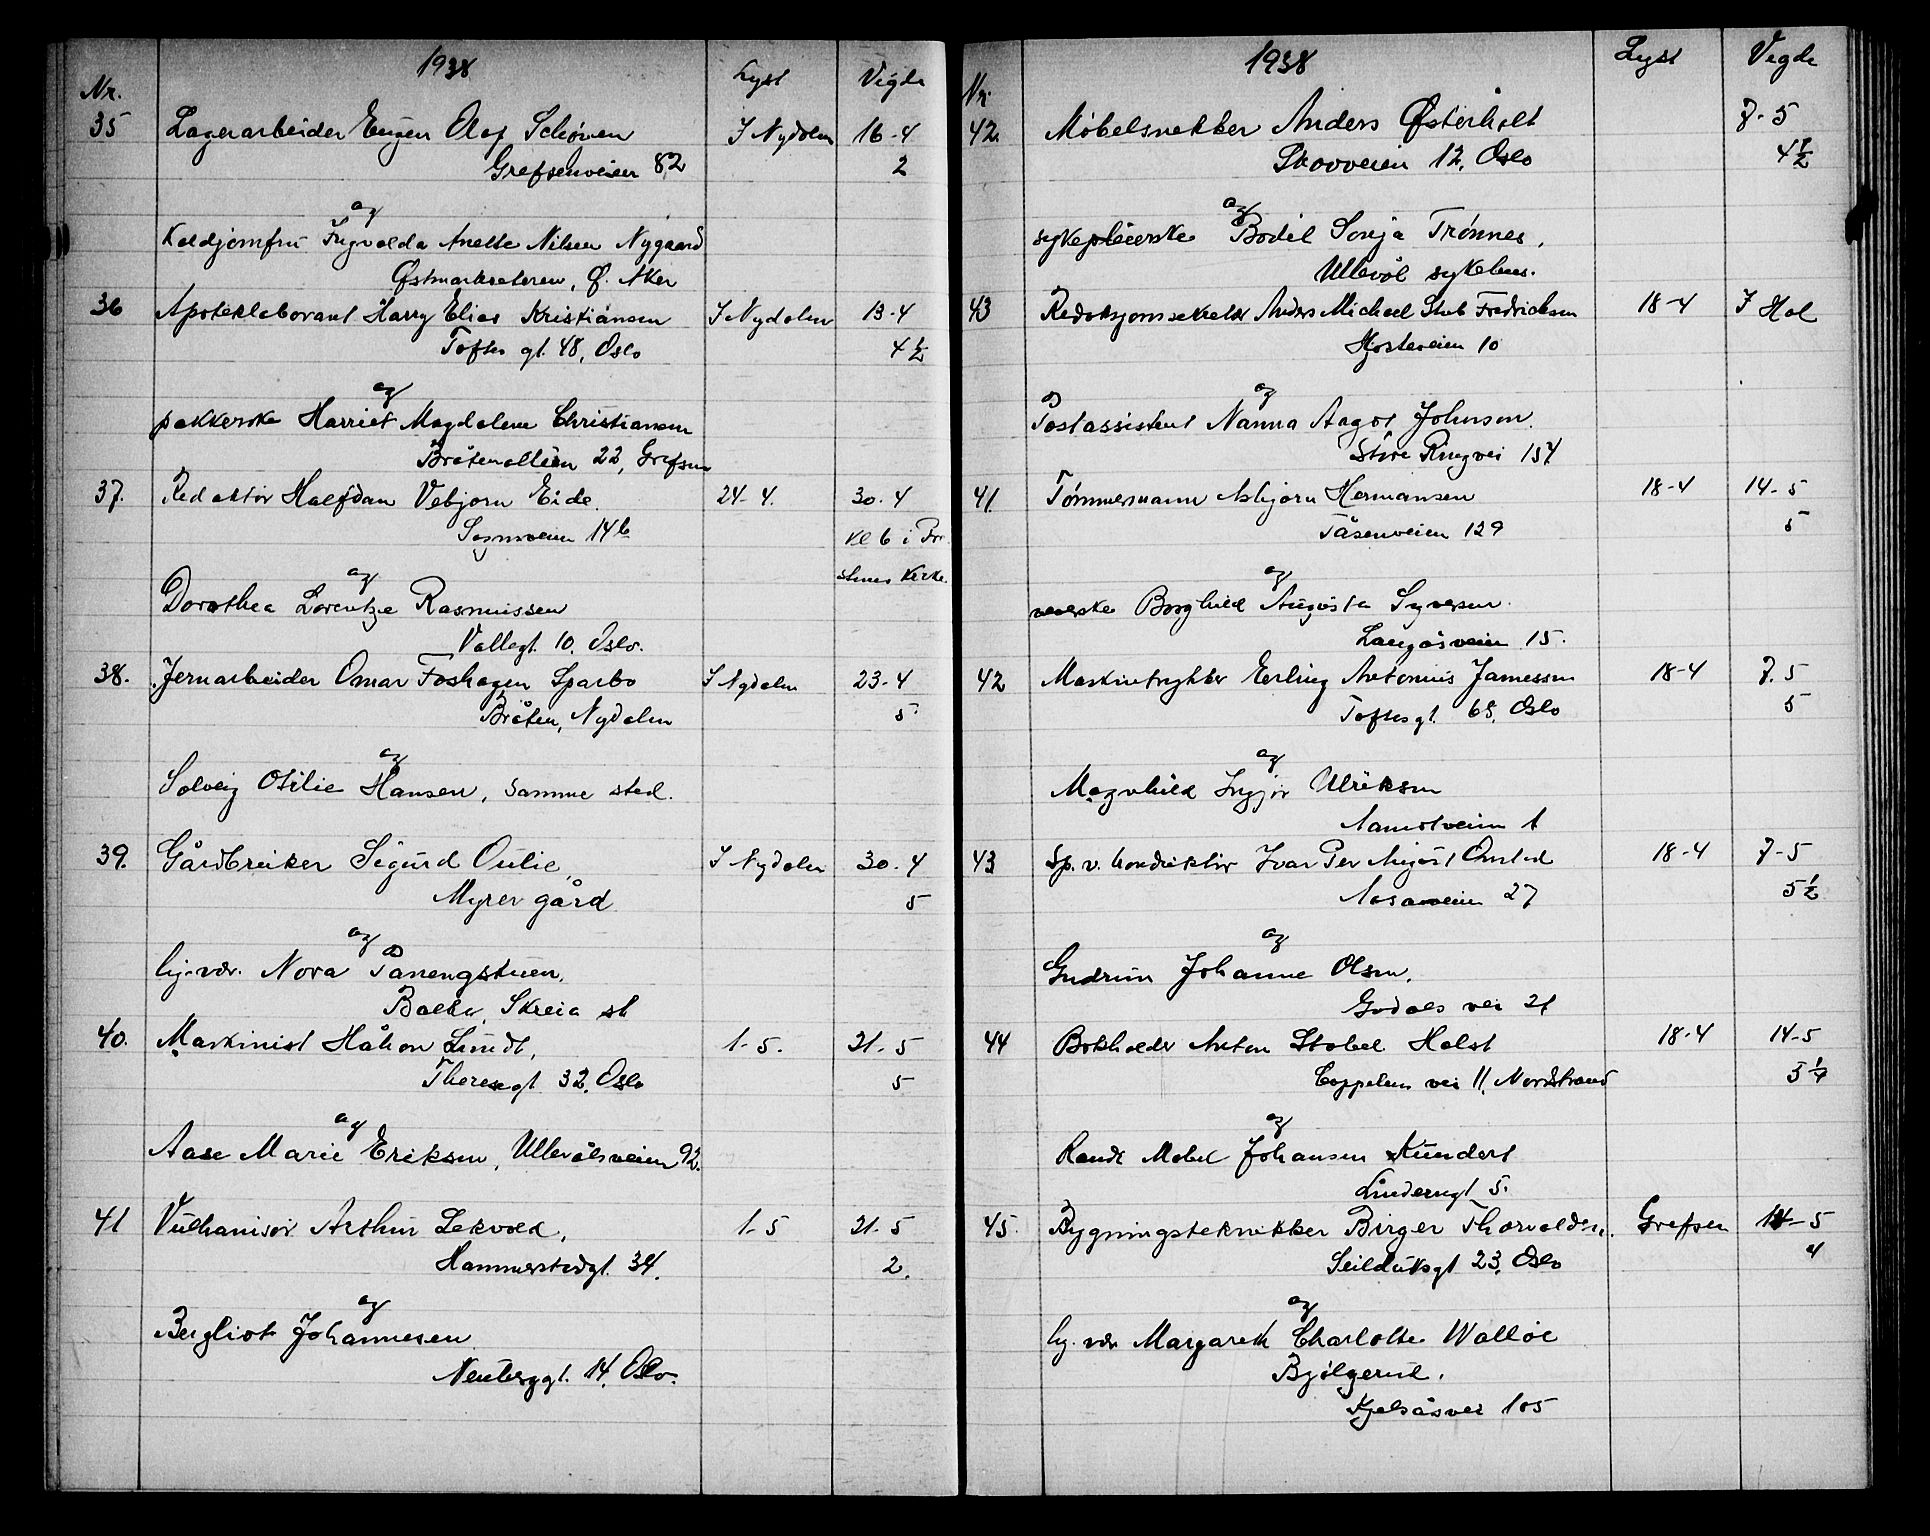 1938
Nr. Lyst Vigde
35 Lagerarbeider Eugen Olaf Schønen I Nydalen 16-4
Grefsenveien 82 2
og
Koldjomfru Ingvalda Anette Nilsen Nygaard
Østmarkseteren, Ø. Aker
36 Apoteklaborant Harry Elias Kristiansen I Nydalen 13-4
Toftes gt. 48, Oslo 4 1/2
og
pakkerske Harriet Magdalene Christiansen
Bråtenalléen 22, Grefsen
37. Redaktør Halfdan Vebjørn Eide. 24-4. 30.4
Sognsveien 14b Kl 6 i
Kirke.
og
Dorothea Lorentze Rasmussen
Vallegt. 10. Oslo.
38. Jernarbeider Omar Foshagen Sparbo I Nydalen 23-4
Bråten, Nydalen 5
og
Solveig Otilie Hansen, samme sted.
39. Gårdbruker Sigurd Oulie, I Nydalen 30.4
Myrer gård 5
og
hj.vær. Nora Panengstuen,
Skreia st
40. Maskinist Håkon Lundt, 1-5. 21-5
Theresegt 32, Oslo 5
og
Aase Marie Eriksen, Ullevålsveien 92.
41 Vulkanisør Arthur Lekvold, 1-5 21-5
Hammerstadgt. 34. 2.
og
Bergliot Johannesen
Neuberggt. 14, Oslo.
1938
Nr. Lyst Vegde
42. Møbelsnekker Anders Østerholt 7-5
Skovveien 12, Oslo 4 1/2
og
sykepleierske Bodil Sonja Trønnes,
Ullevål sykehus.
43 Redaksjonssekretær Anders Michael Stub Fredriksen 18-4 I Hol
10
og
Postassistent Nanna Aagot Johnsen.
Store Ringvei 154
41. Tømmermann Asbjørn Hermansen 18-4 14-5
Tåsenveien 129 5
og
veverske Borghild Augusta Syversen.
Langåsveien 15.
42 Maskintrykker Erling Antonius Jamessen 18-4 7.5
Toftesgt. 65, Oslo 5
og
Magnhild Ulriksen
1
43 Sp.v. konduktør Ivar Per August Onstad 18-4 7-5
Aasaveien 27 5 1/2
og
Gudrun Johanne Olsen,
Godals vei 21
44 Bokholder Anton Stabel Holst 18-4 14-5
Coppelens vei 11, Nordstrand
og
Randi Mabel Johansen Kundert
Linderngt 5.
45. Bygningstekniker Birger Thorvaldsen. Grefsen 14-5
Seilduksgt 23, Oslo 4
og
hj. vær Margareth Charlotte Walløe
Kjelsåsvei 105